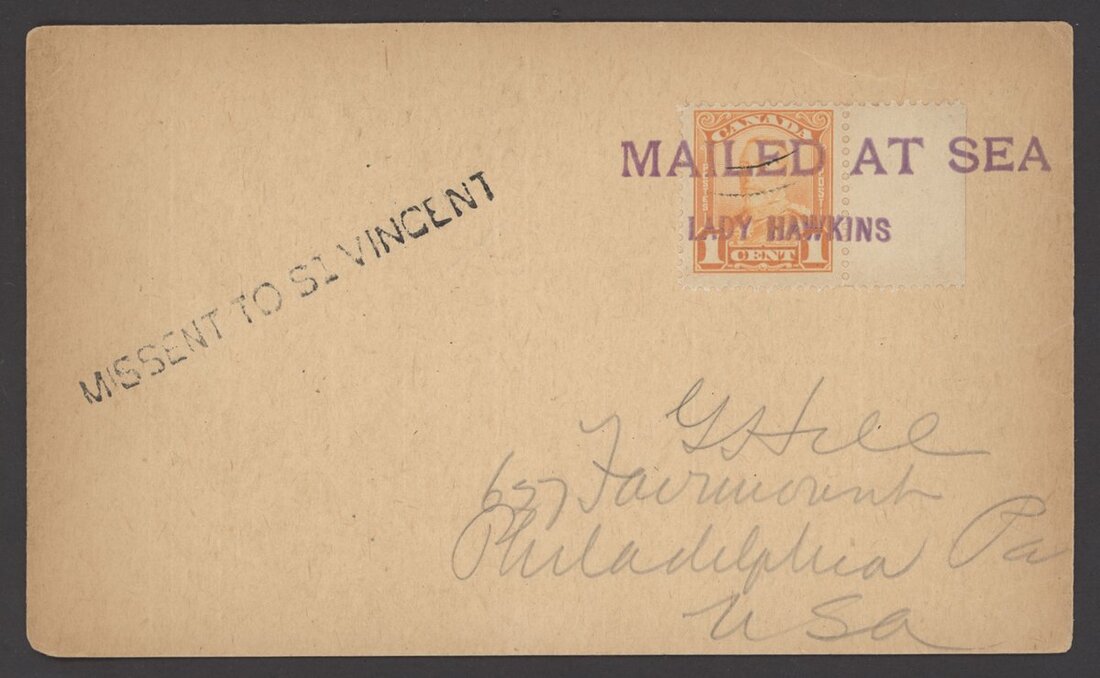 MAILED AT SEA
LADY HAWKINS
CANADA
POSTES
POST
1 CENT 1
MISSENT TO ST VINCENT
G S Hill
657 Fairmount
Philadelphia Pa
USa